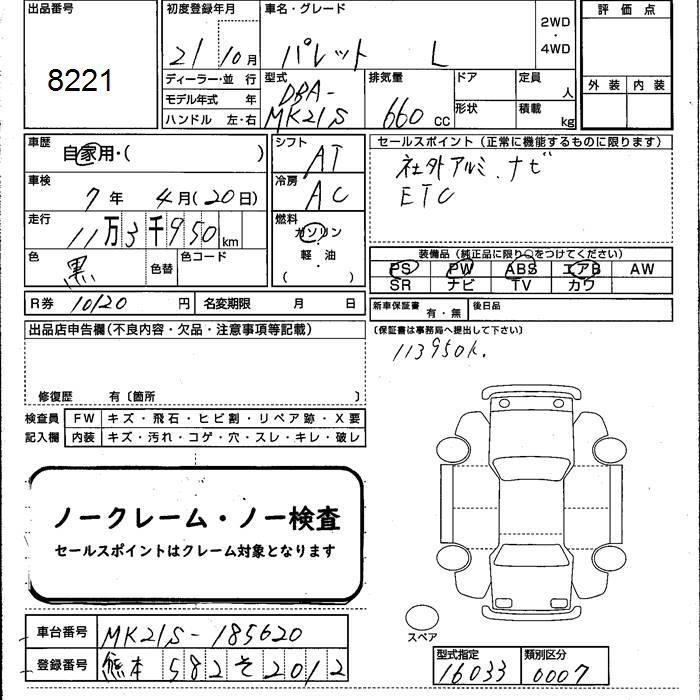 出品番号
8221
初度登録年月
21 10月
車名・グレード
パレット L
2WD
・
4WD
評価点
外装 内装
ディーラー・並 行
モデル年式 年
ハンドル 左・右
型式
DBA-
MK21S
排気量
660 cc
ドア
形状
定員
人
積載
kg
車歴
自家用・( )
車検
7年 4月(20日)
走行
11万3千950km
色
黒
色替
色コード
シフト
AT
冷房
AC
燃料
ガソリン
・
軽 油
( )
セールスポイント(正常に機能するものに限ります)
社外アルミ.ナビ
ETC
装備品(純正品に限り○をつけてください)
PS PW ABS エアB AW
SR ナビ TV カワ
R券 10120 円
名変期限 月 日
新車保証書
有・無
後日品
(保証書は事務局へ提出して下さい)
113950k.
出品店申告欄(不良内容・欠品・注意事項等記載)
修復歴 有〔箇所 〕
検査員
記入欄
FW キズ・飛石・ヒビ割・リペア跡・X要
内装 キズ・汚れ・コゲ・穴・スレ・キレ・破レ
ノークレーム・ノー検査
セールスポイントはクレーム対象となります
スペア
車台番号 MK21S-185620
登録番号 熊本 582 そ 2012
型式指定
16033
類別区分
0007